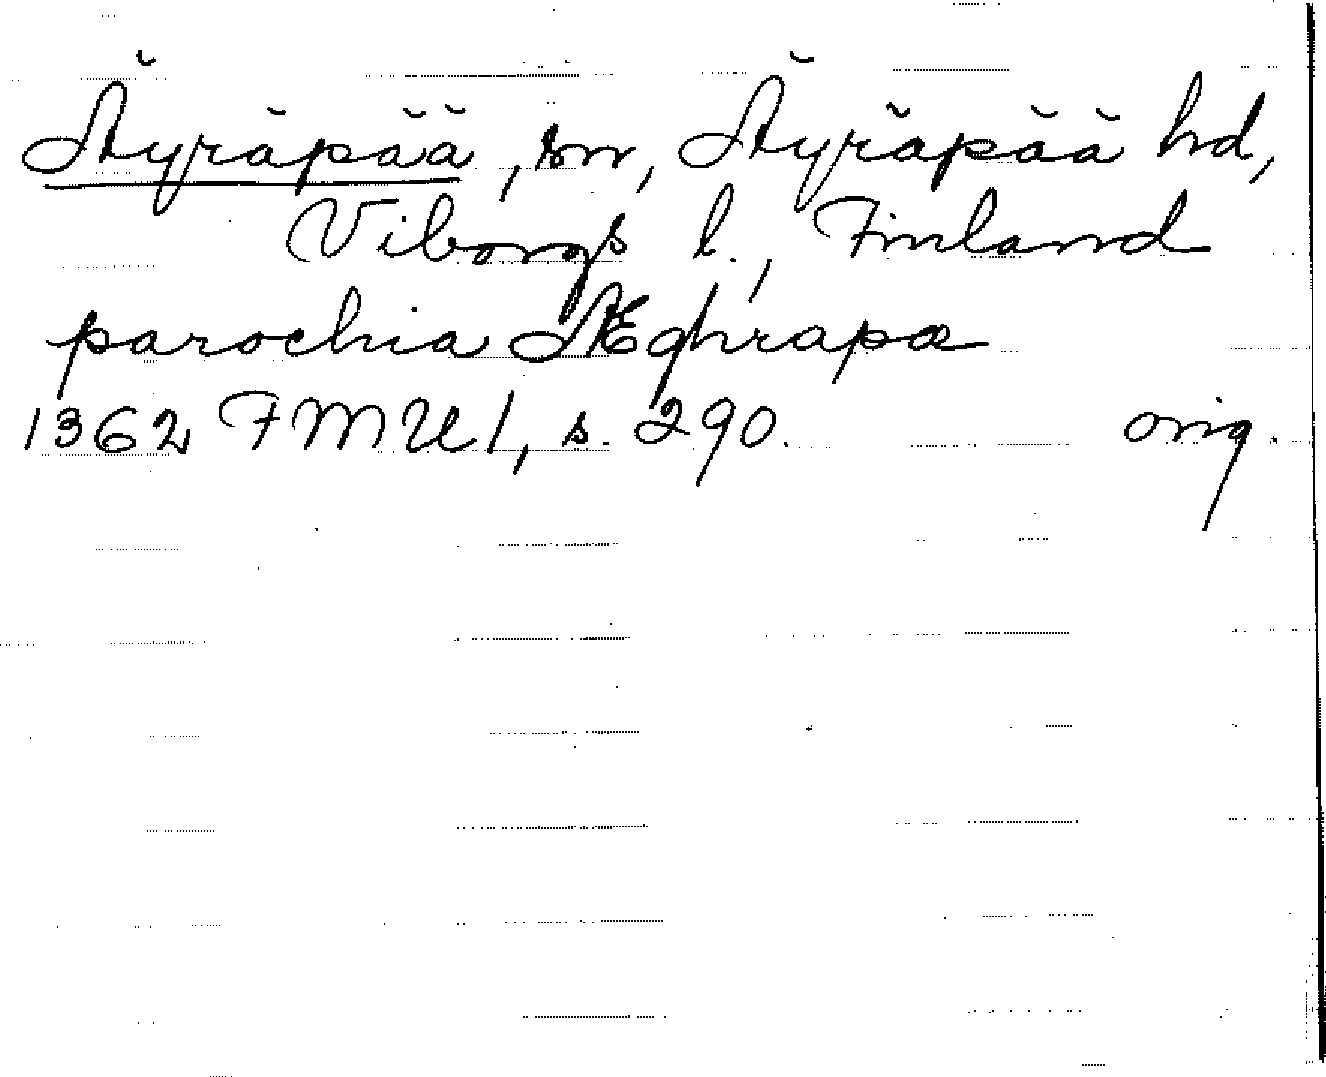 Äyräpää, sn, Äyräpää hd,
Viborgs l., Finland
parochia Æghrapæ
1362 FMU 1, s. 290. orig.